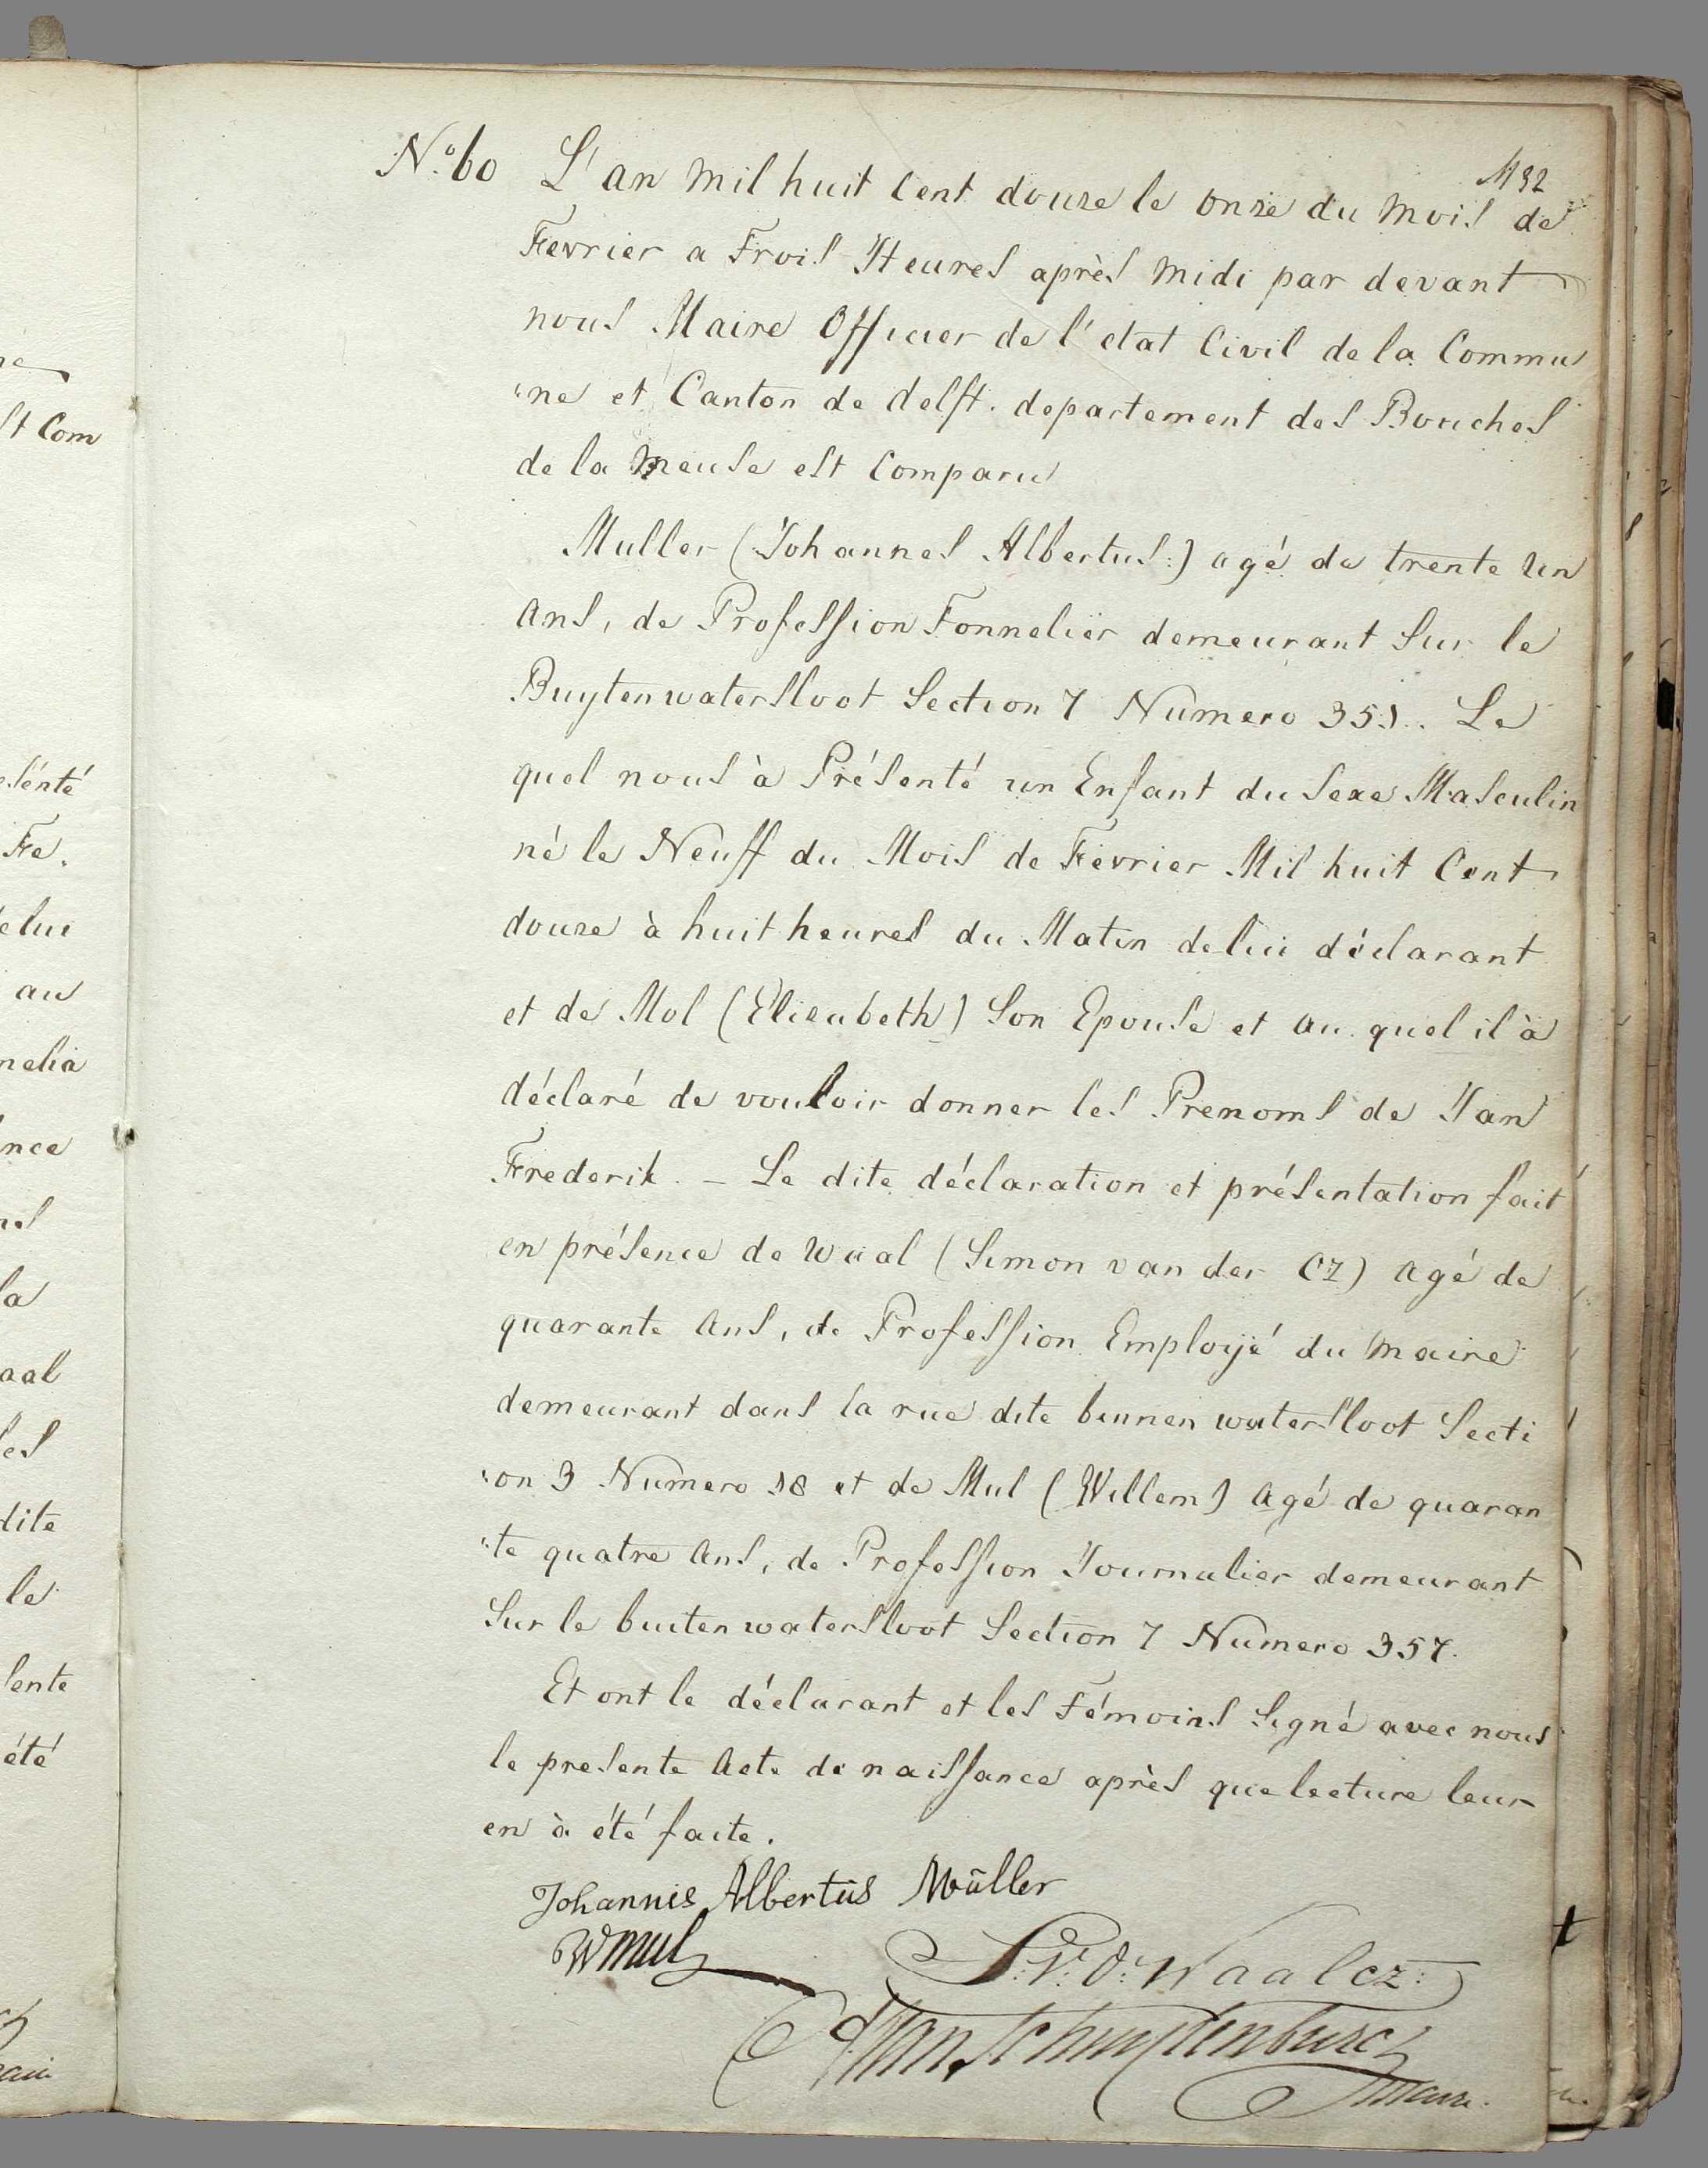 ne
st Com
esenté
Fe.
de lui
au
nelia
ence
la
aal
les
dite
le
sente
été
M 32
No. 60 L'an mil huit Cent douze le onze du mois de
Fevrier a Trois Heures après midi par devant
nous Maire Officier de l'etat Civil de la Commu
"ne et Canton de delft. departement des Bouches
de la Meuse est Comparu
Muller (Johannes Albertus:) agé de trente un
ans, de Profession Tonnelier demeurant Sur le
Buytenwatersloot Section 7 Numero 351. Le
quel nous à Présenté un Enfant du Sexe Masculin
né le Neuff du Mois de Fevrier Mil huit Cent
douze à huit heures du Matin de lui déclarant
et de Mol (Elisabeth) Son Epouse et au quel il à
déclaré de vouloir donner les Prenoms de Jan
Frederik. — Le dite déclaration et présentation fait
en présence de Waal (Simon van der CZ) agé de
quarante ans, de Profession Employé du Maire
demeurant dans la rue dite binnen watersloot Secti
"on 3 Numero 18 et de Mul (Willem) agé de quaran
"te quatre ans, de Profession Journalier demeurant
Sur le buiten watersloot Section 7 Numero 357.
Et ont le déclarant et les Témoins Signé avec nous
le presente Acte de naissance après que lecture leur
en à été faite.
Johannes Albertus Müller
W mul
S: V: D: Waal cz:
van Schuylenburch
maire.